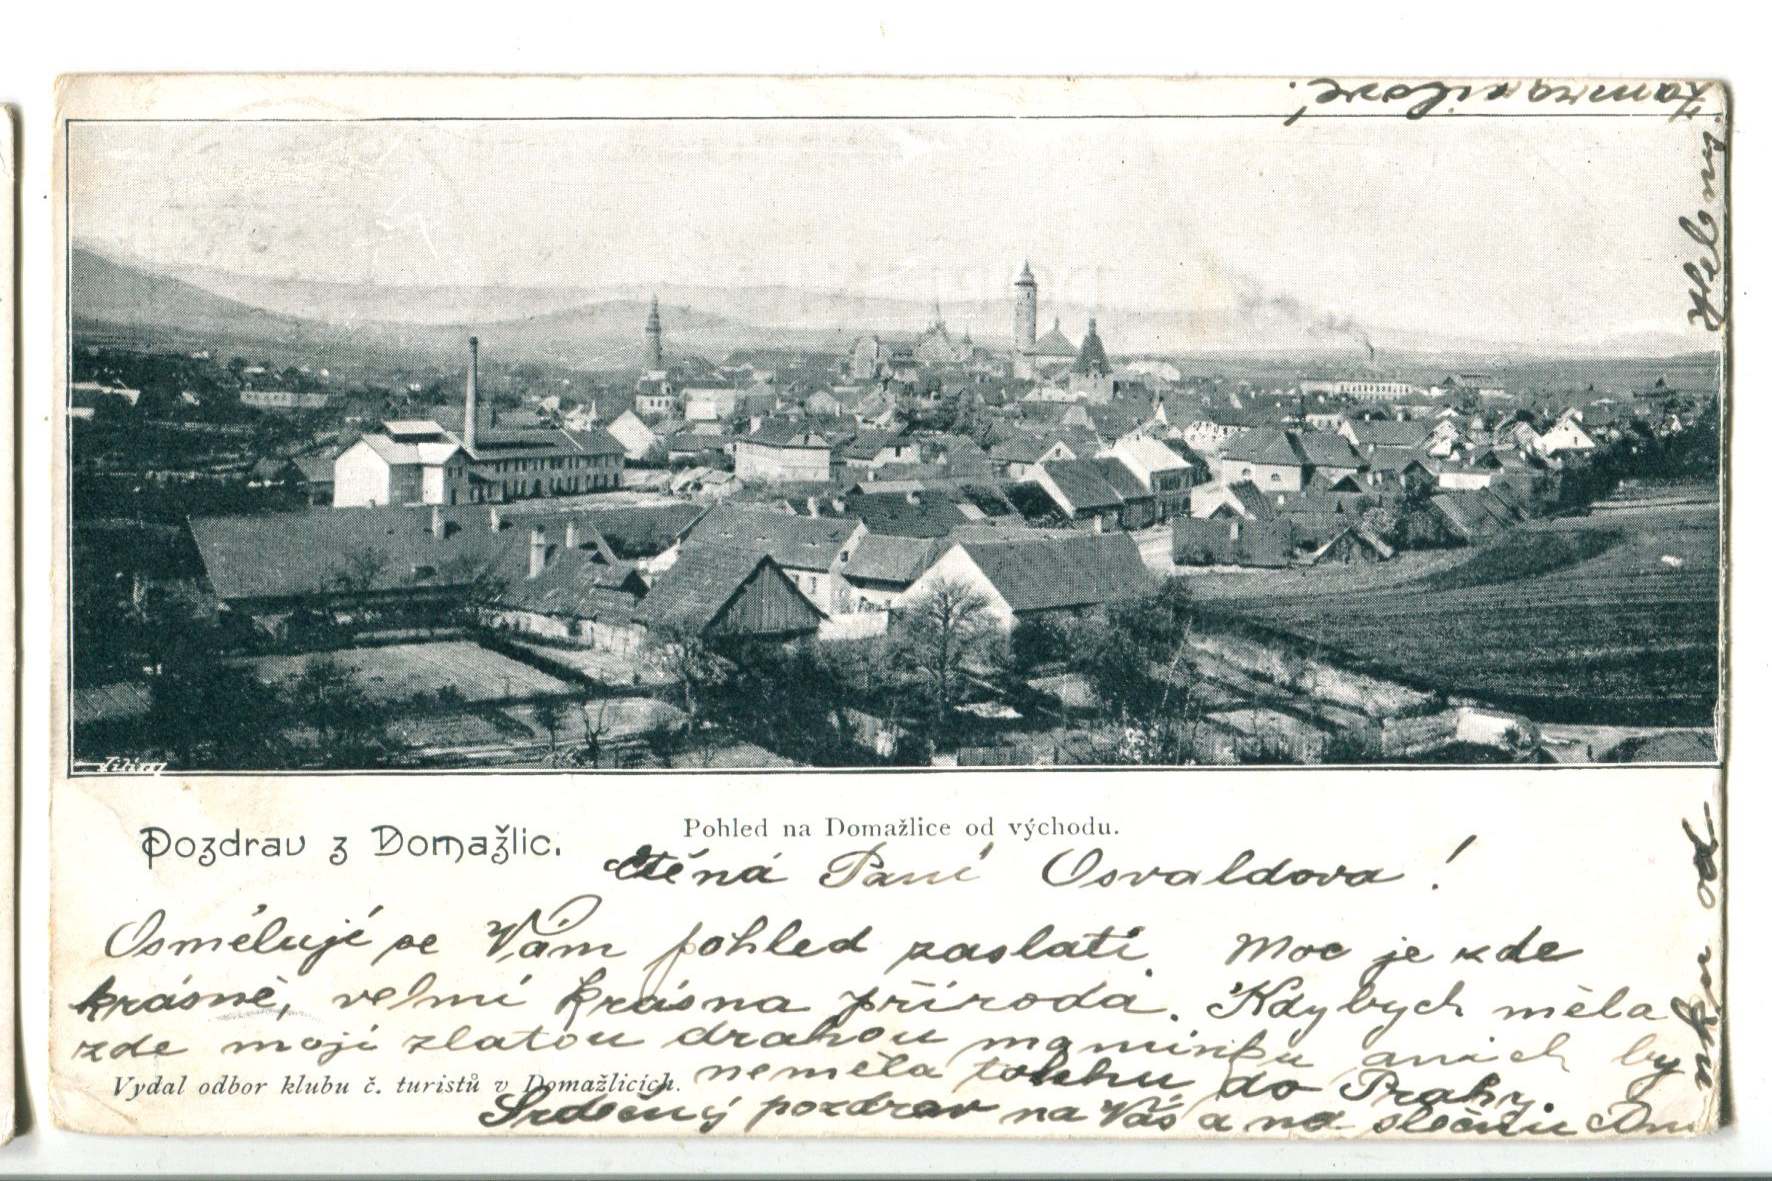 Pozdrav z Domažlic.
Pohled na Domažlice od východu.
Ctěná Paní Osvaldova!
Osměluji se Vám pohled zaslati. Moc je zde
krásně, velmi krásna příroda. Kdybych měla
zde moji zlatou drahou maminku anich by
neměla touhu do Prahy.
Vydal odbor klubu č. turistů v Domažlicích.
Srdečný pozdrav na Vás a na slečnu Ani
nku od
Heleny